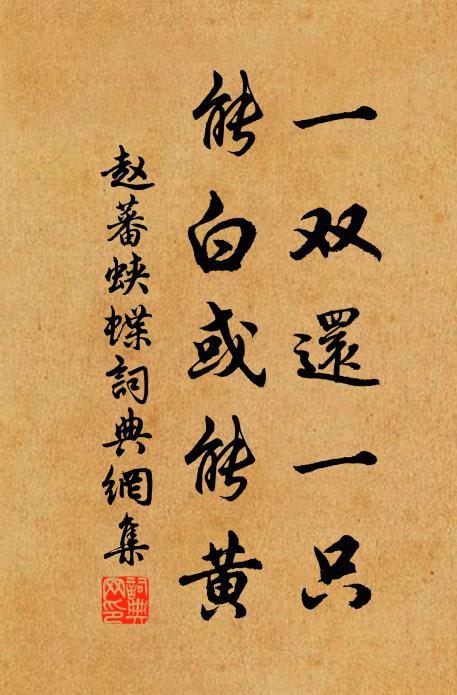 一双還一只
能白或能黄
赵蕃蛱蝶詞典網集
詞典
网印